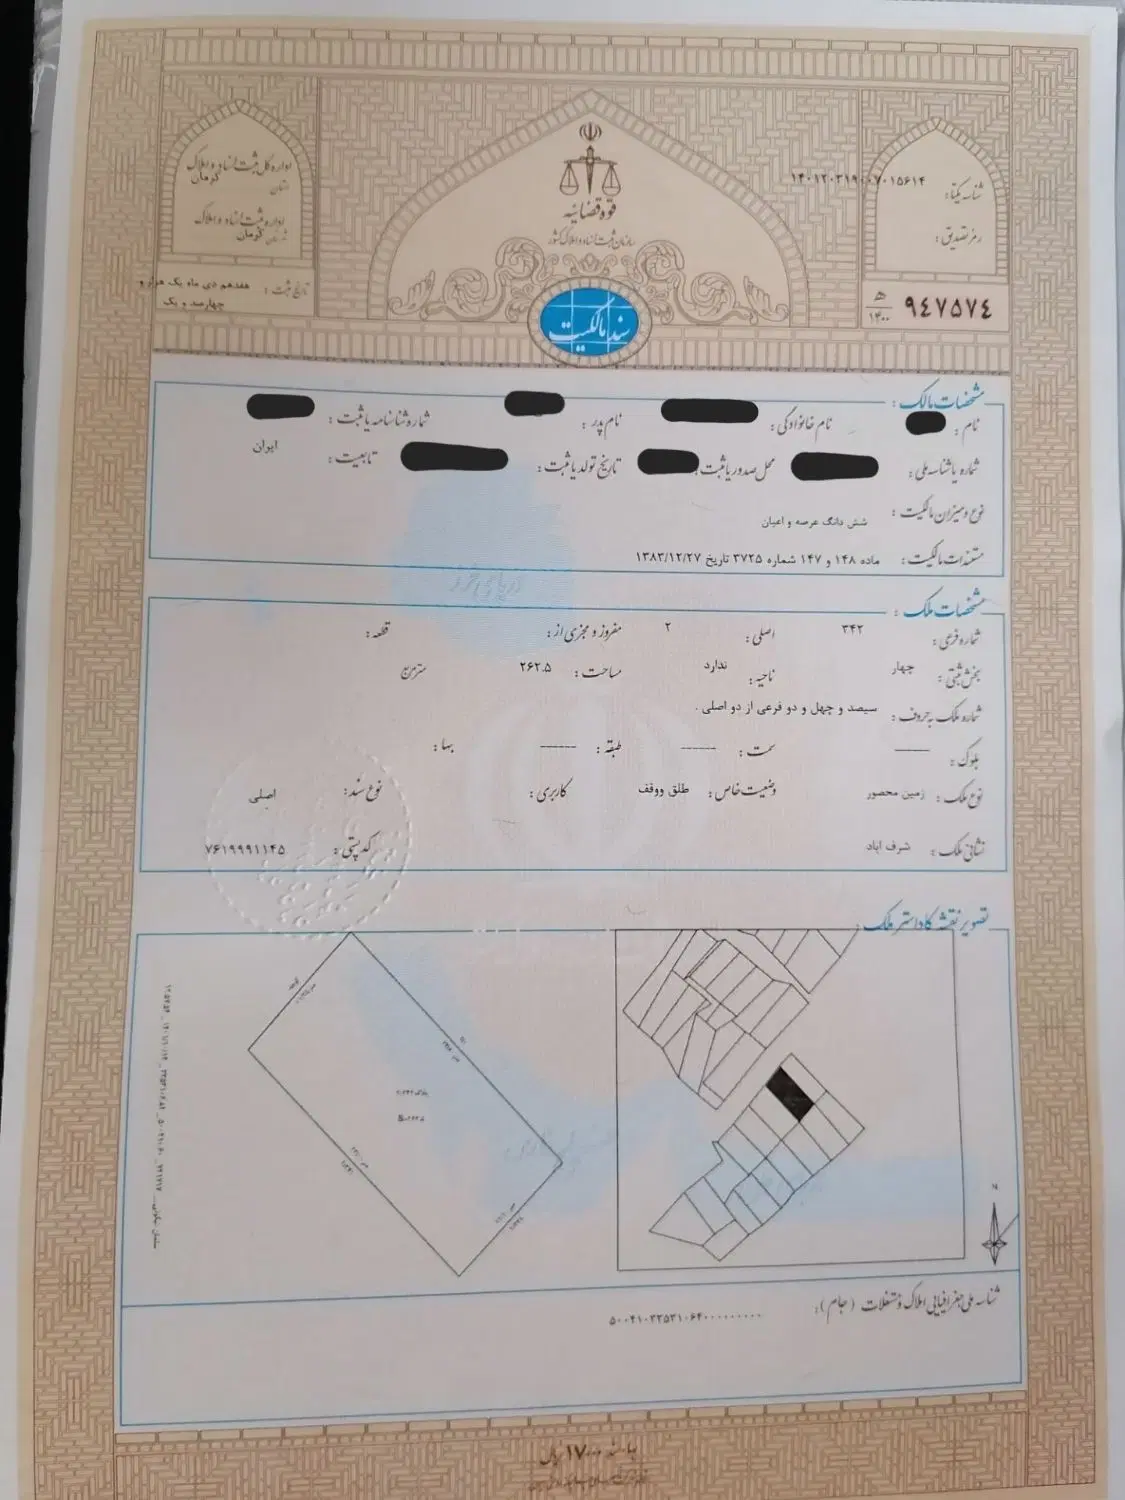 قوه قضائیه
سازمان ثبت اسناد و املاک کشور
سند مالکیت
اداره کل ثبت اسناد و املاک
استان کرمان
اداره ثبت اسناد و املاک
کرمان
تاریخ ثبت: هفدهم دی ماه یک هزار و
چهارصد و یک
شناسه یکتا: ۱۴۰۱۲۰۳۱۹۰۰۷۰۱۵۶۱۴
رمز تصدیق:
۹۴۷۵۷۴ ه‍ ۱۴۰۰
مشخصات مالک:
نام: نام خانوادگی: نام پدر: شماره شناسنامه یا ثبت:
شماره یا شناسه ملی: محل صدور یا ثبت: تاریخ تولد یا ثبت: تابعیت: ایران
نوع و میزان مالکیت: شش دانگ عرصه و اعیان
مستندات مالکیت: ماده ۱۴۸ و ۱۴۷ شماره ۳۷۲۵ تاریخ ۱۳۸۳/۱۲/۲۷
مشخصات ملک:
شماره فرعی: ۳۴۲ اصلی: ۲ مفروز و مجزی از: قطعه:
بخش ثبتی: چهار ناحیه: ندارد مساحت: ۲۶۲.۵ متر مربع
شماره ملک به حروف: سیصد و چهل و دو فرعی از دو اصلی .
بلوک: ------ سمت: ------ طبقه: ------ بها:
نوع ملک: زمین محصور وضعیت خاص: طلق ووقف کاربری: نوع سند: اصلی
نشانی ملک: شرف اباد کد پستی: ۷۶۱۹۹۹۱۱۴۵
تصویر نقشه کاداستر ملک
N
شناسه ملی جغرافیایی املاک و مستغلات (جام):